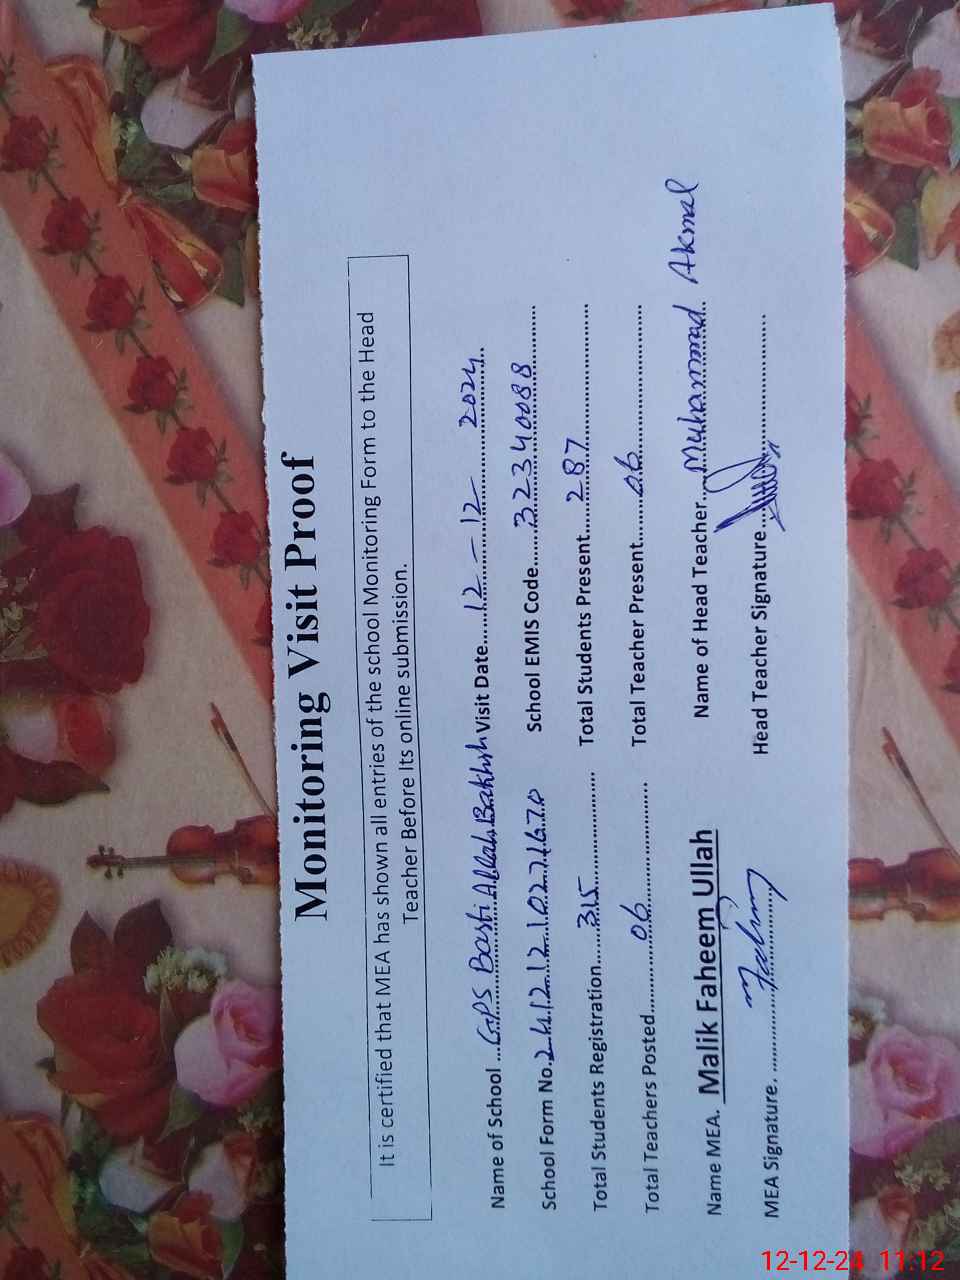 Monitoring Visit Proof
It is certified that MEA has shown all entries of the school Monitoring Form to the Head
Teacher Before Its online submission.
Name of School ...GPS Basti Allah Bakhsh Visit Date......12 - 12 - 2024
School Form No. 2412121027670 School EMIS Code......32340088
Total Students Registration......315 Total Students Present......287
Total Teachers Posted......06 Total Teacher Present......06
Name MEA. Malik Faheem Ullah Name of Head Teacher...Muhammad Akmal
MEA Signature. ......Faheem Head Teacher Signature......
12-12-24 11:12